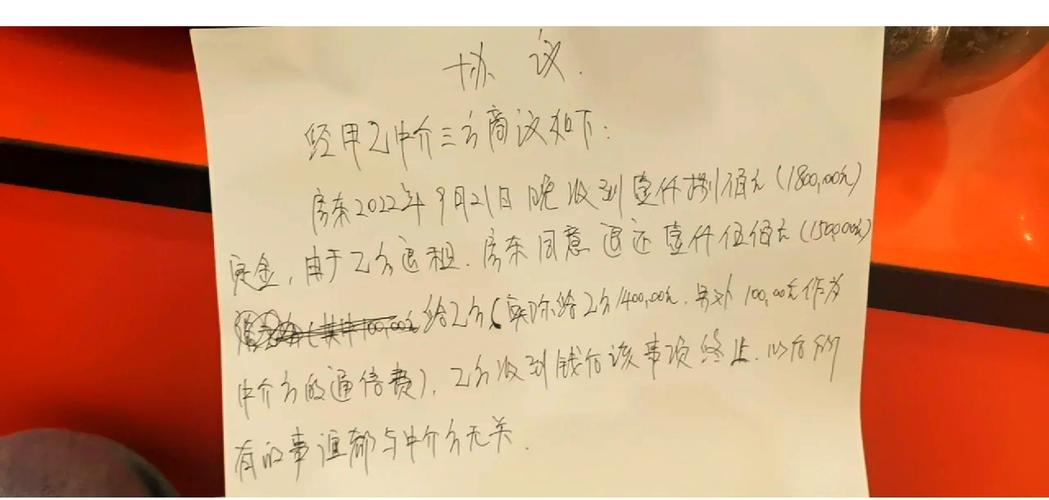 协议.
经甲乙中介三方商议如下:
房东2022年9月21日晚收到壹仟捌佰元(1800,00元)
定金,由于乙方退租.房东同意退还壹仟伍佰元(1500,00元)
(其中100,00元给乙方(实际给乙方1400,00元.另外100,00元作为
中介方的通信费),乙方收到钱后该事项终止.以后所
有的事谊都与中介方无关.